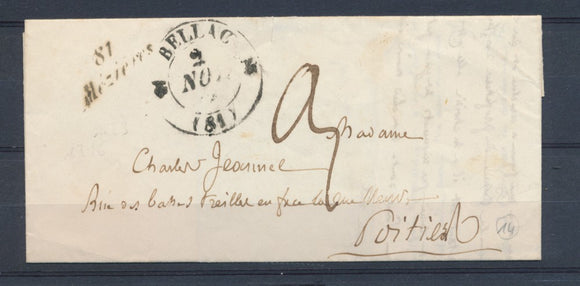 81
Mézières
BELLAC
2
NOV
(81)
Madame
Charles Jeannel
Rue des basses treilles en face
Poitiers
14